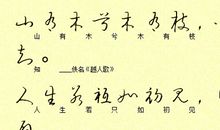 山有木兮木有枝，
山 有 木 兮 木 有 枝
知。
知 ___佚名《越人歌》
人生若只如初见，
人 生 若 只 如 初 见